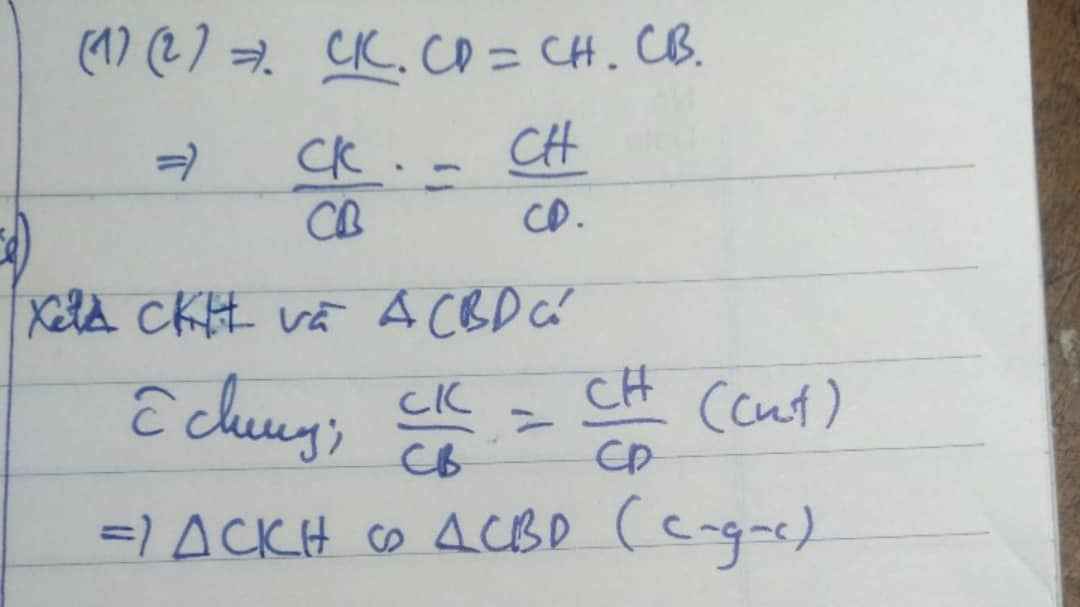 (1) (2) ⇒. CK. CD = CH. CB.
⇒ CK/CB . = CH/CD.
Xét Δ CKH và Δ CBD có
Ĉ chung; CK/CB = CH/CD (cmt)
⇒ ΔCKH ∽ ΔCBD (c-g-c)